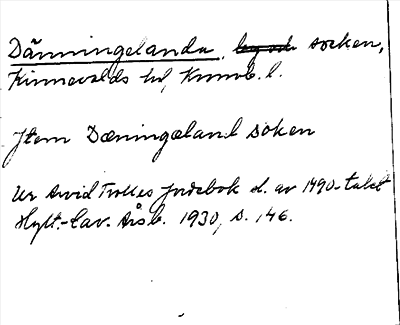 Dänningelanda, socken,
Kinnevalds hd, Kronob. l.
Jtem Dæningæland soken
Ur Arvid Trolles jordebok sl. av 1490-talet
Hylt.-Cav. Årsb. 1930, s. 146.